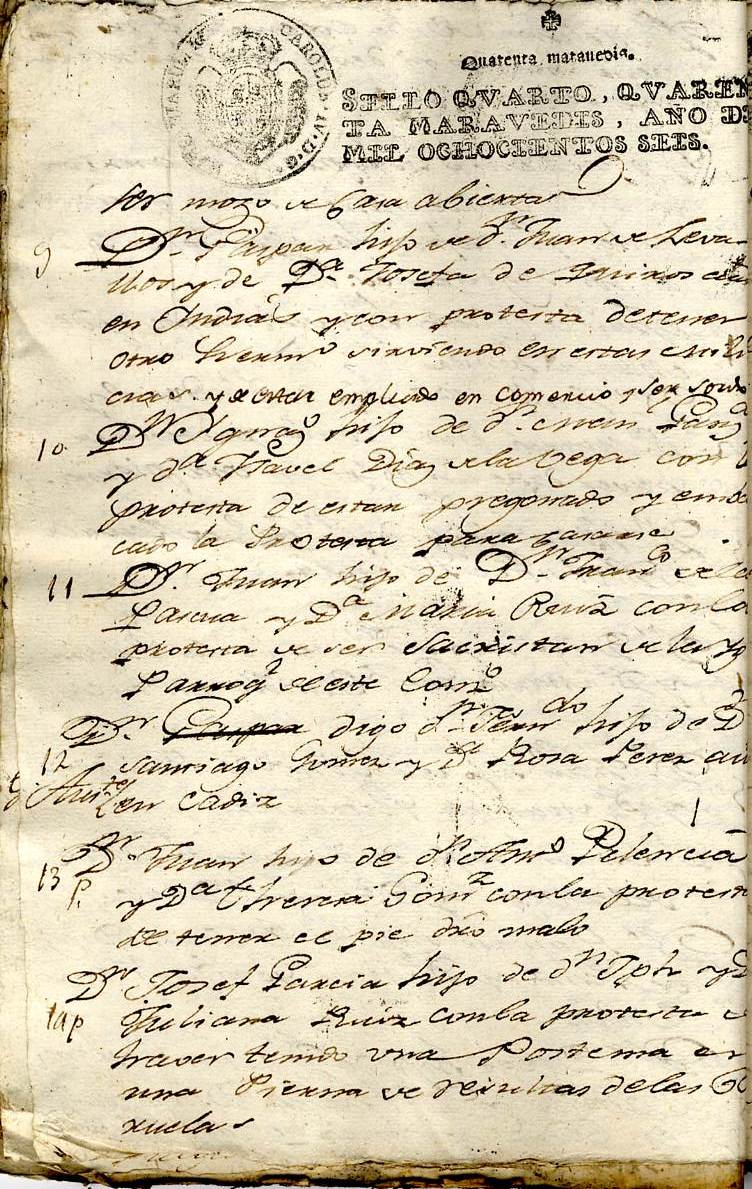 CAROLUS IV D. G.
Quarenta maravedis.
SELLO QVARTO, QVAREN
TA MARAVEDIS, AÑO DE
MIL OCHOCIENTOS SEIS.
ser mozo de Casa abierta
9 Dn. Gaspar hijo de dn. Juan de Zeva
llos y de Da. Josefa de Quiros
en Indias y con protesta de tener
otro hermo sirviendo en estas Mili
cias. y de estar empleado en comercio y ser sordo
10 Dn Ygno hijo de dn. Man
y da Ysavel Diaz de la Vega con
protesta de estar pregonado y
cado la Protesta para Casarse
11 Dn. Juan hijo de Dn. Franco de la
Pascua y Da Maria Ruiz con la
protesta de ser Sacristan de la Yg
Parroql de este Comro
Dn. Gaspar digo dn. Ferndo hijo de D
12 Santiago Gomez y Da Rosa Perez au
en Cadiz
13 Dn. Juan hijo de dn Anto Palencia
P. y Da Theresa Gomz con la protest
de tener el pie dro malo
Dn Josef Garcia hijo de dn Jph y D
14 p Juliana Ruiz con la protesta
haver tenido una Postema en
una Pierna de resultas de las
ruelas